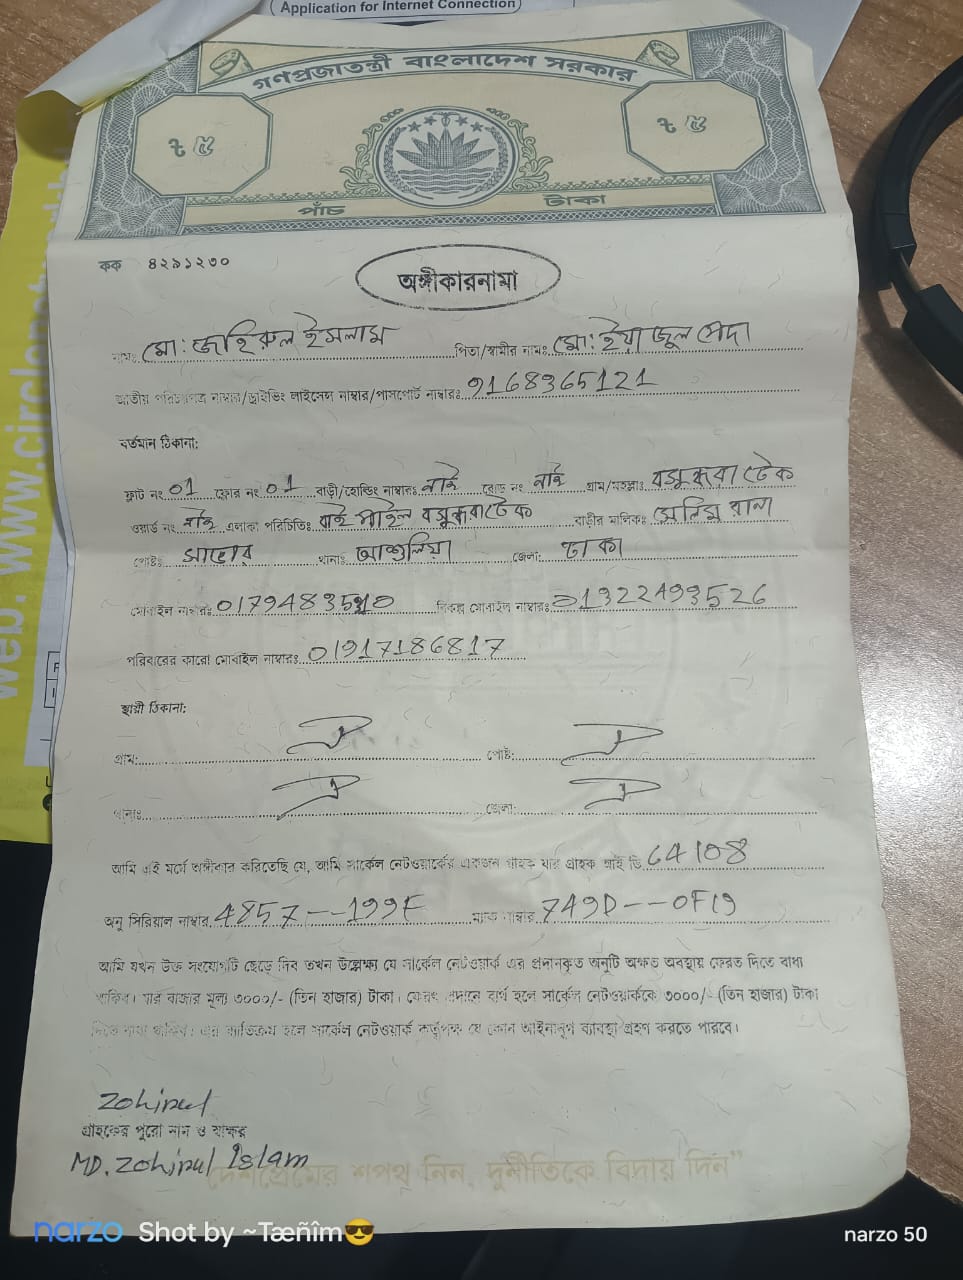 Application for Internet Connection
গণপ্রজাতন্ত্রী বাংলাদেশ সরকার
৳ ৫ ৳ ৫
পাঁচ টাকা
কক ৪২৯১২৩০
অঙ্গীকারনামা
নামঃ মো: জহিরুল ইসলাম পিতা/স্বামীর নামঃ মো: ইয়াজুল
জাতীয় পরিচয়পত্র নাম্বার/ড্রাইভিং লাইসেন্স নাম্বার/পাসপোর্ট নাম্বারঃ 9168365121
বর্তমান ঠিকানা:
ফ্লাট নং 01 ফ্লোর নং 01 বাড়ী/হোল্ডিং নাম্বারঃ নাই রোড নং নাই গ্রাম/মহল্লাঃ বসুন্ধরা টেক
ওয়ার্ড নং নাই এলাকা পরিচিতিঃ বাই পাইল বসুন্ধরাটেক বাড়ীর মালিকঃ সেলিম রানা
পোষ্টঃ সাভার থানাঃ আশুলিয়া জেলা: ঢাকা
মোবাইল নাম্বারঃ বিকল্প মোবাইল নাম্বারঃ 01322493526
পরিবারের কারো মোবাইল নাম্বারঃ 01917186817
স্থায়ী ঠিকানা:
গ্রাম: পোষ্ট:
থানাঃ জেলা:
আমি এই মর্মে অঙ্গীকার করিতেছি যে, আমি সার্কেল নেটওয়ার্কের একজন গ্রাহক যার গ্রাহক আই ডি 64108
অনু সিরিয়াল নাম্বার 4857--199F ম্যাক নাম্বার 749D--0F19
আমি যখন উক্ত সংযোগটি ছেড়ে দিব তখন উল্লেক্ষ্য যে সার্কেল নেটওয়ার্ক এর প্রদানকৃত অনুটি অক্ষত অবস্থায় ফেরত দিতে বাধ্য
থাকিব। যার বাজার মূল্য ৩০০০/- (তিন হাজার) টাকা। ফেরৎ প্রদানে ব্যর্থ হলে সার্কেল নেটওয়ার্ককে ৩০০০/- (তিন হাজার) টাকা
দিতে বাধ্য থাকিব। এর ব্যতিক্রম হলে সার্কেল নেটওয়ার্ক কর্তৃপক্ষ যে কোন আইনানুগ ব্যবস্থা গ্রহণ করতে পারবে।
Zohirul
গ্রাহকের পুরো নাম ও স্বাক্ষর
MD. Zohirul Islam
দেশপ্রেমের শপথ নিন, দুর্নীতিকে বিদায় দিন"
narzo Shot by ~Tæñîm😎 narzo 50